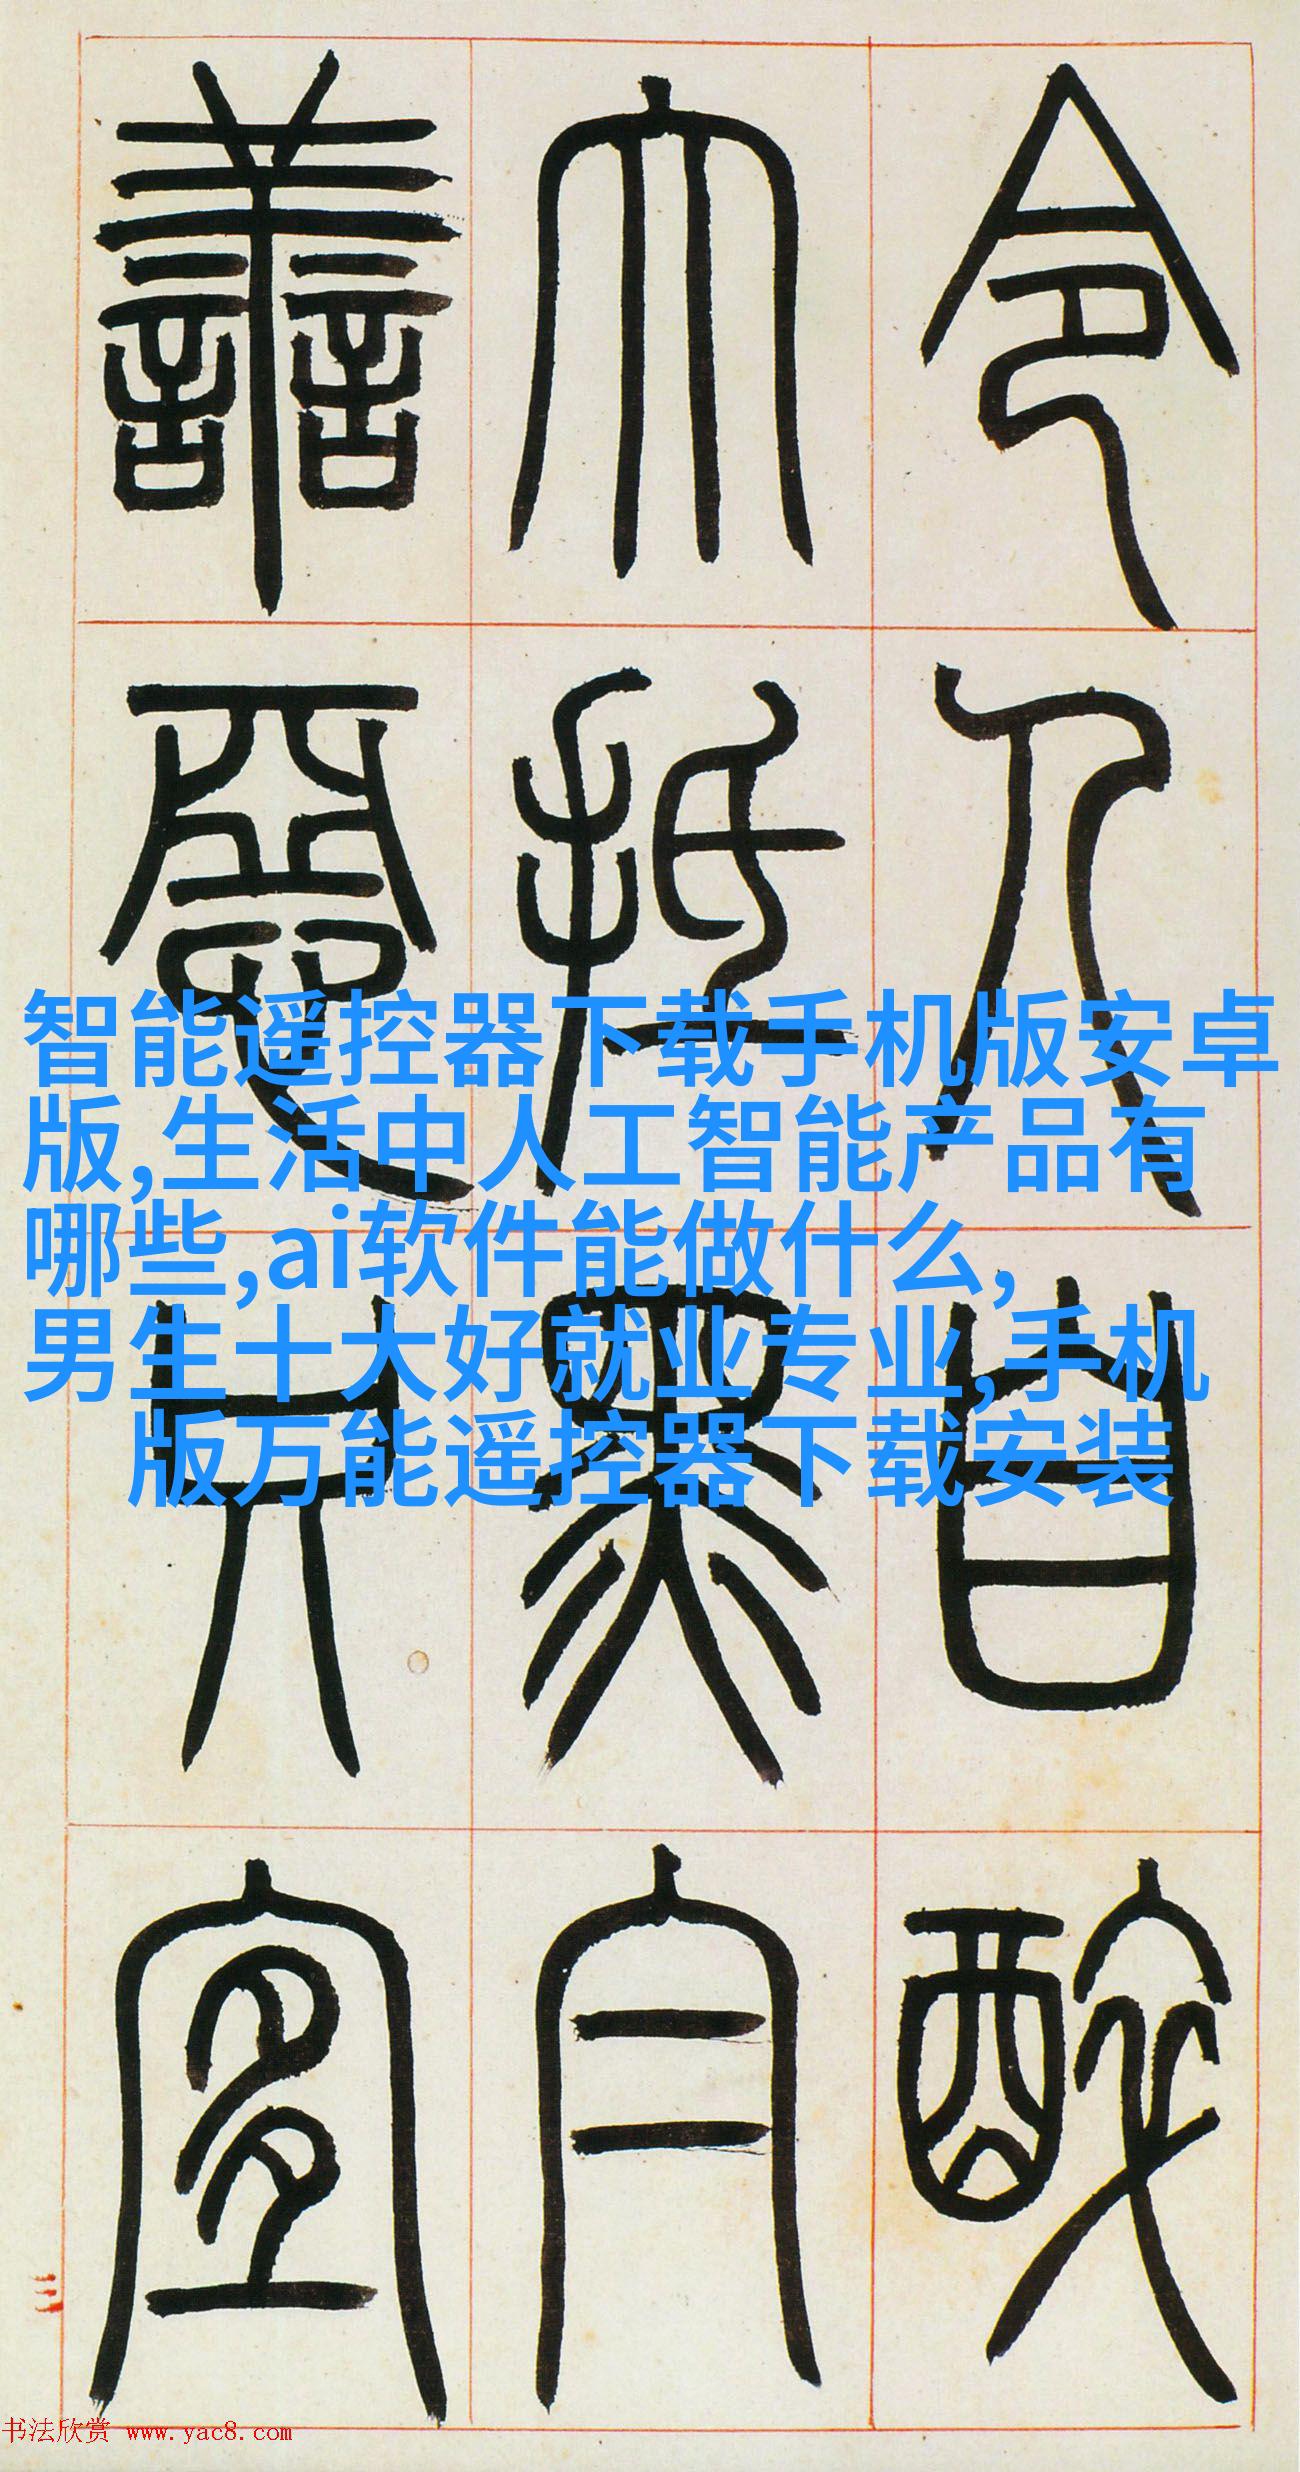 令人自醉
大抵黑
善
宜
智能遥控器下载手机版安卓
版,生活中人工智能产品有
哪些,ai软件能做什么,
男生十大好就业专业,手机
版万能遥控器下载安装
三
书法欣赏 www.yac8.com